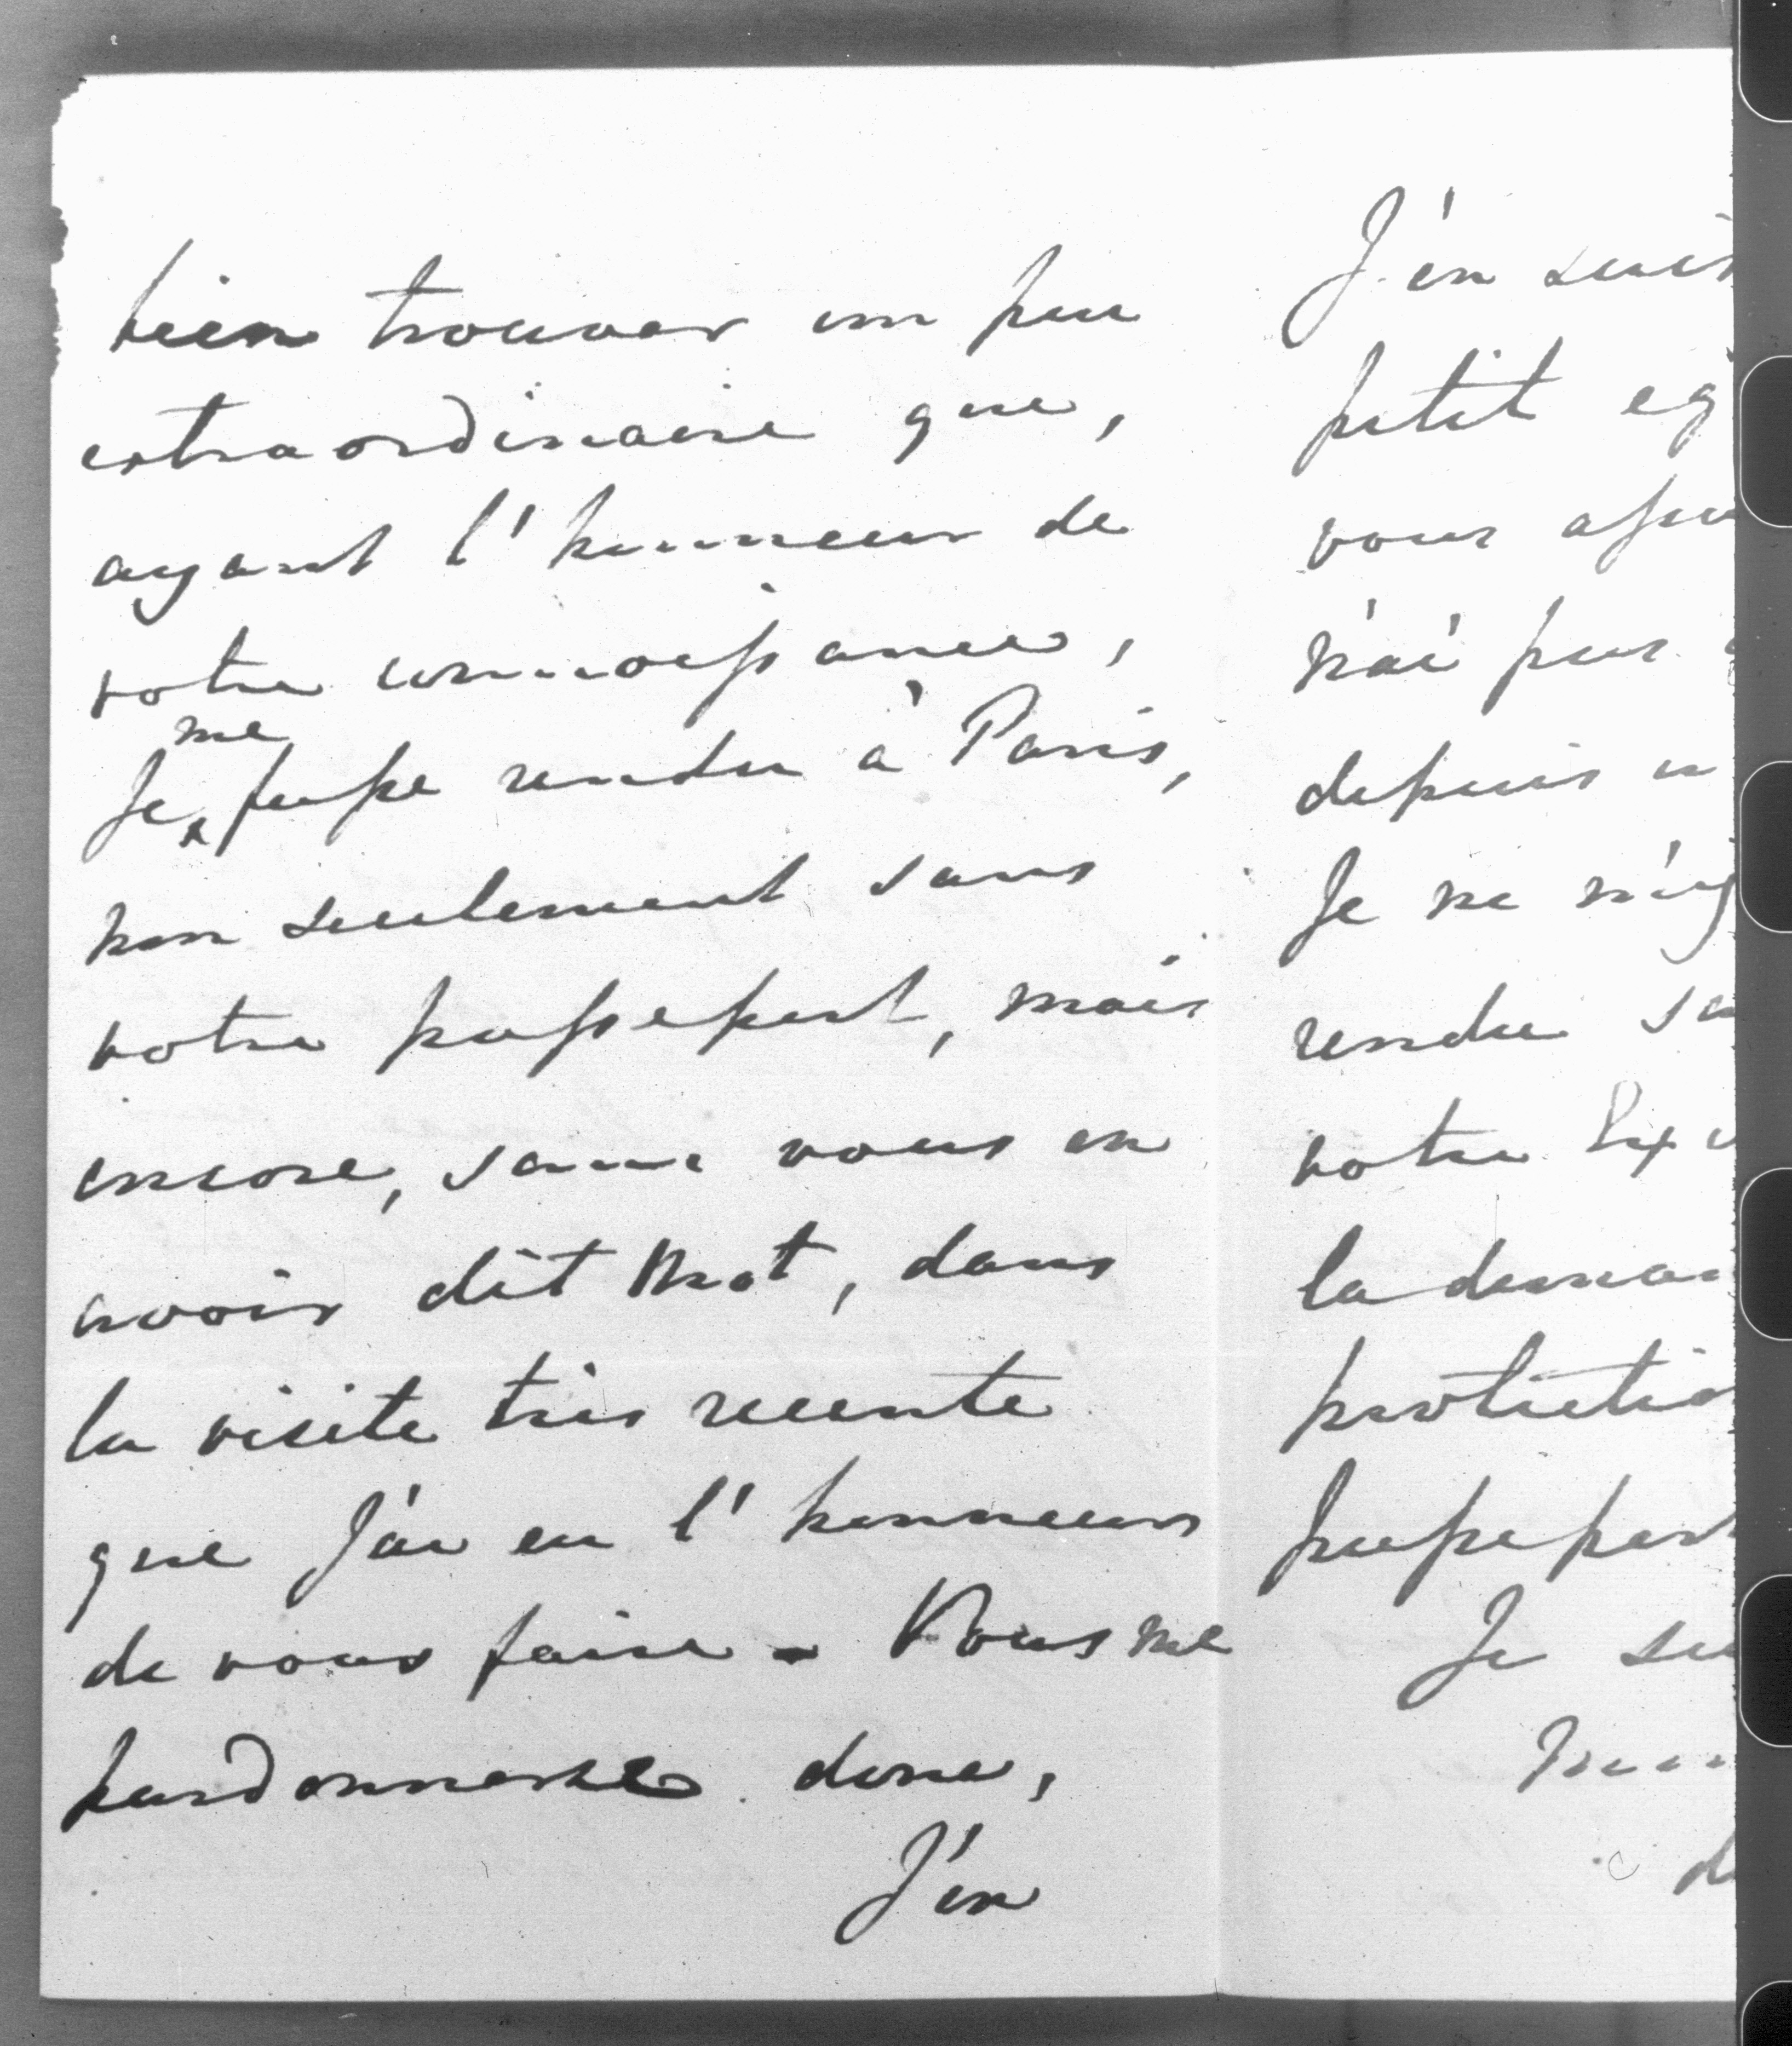 bien trouver un peu
extraordinaire que,
ayant l'honneur de
votre connoissance,
me
Je fusse rendu à Paris,
non seulement sans
votre passeport, mais
encore, sans vous en
avoir dit mot, dans
la visite tres recente
que J'ai eu l'honneur
de vous faire - Vous me
pardonnerez donc,
J'en
J'en suis
petit eg
vous assu
n'ai pas
depuis
Je ne m'ey
rendu sa
votre Exc
la deman
protectio
passeport
Je su
d